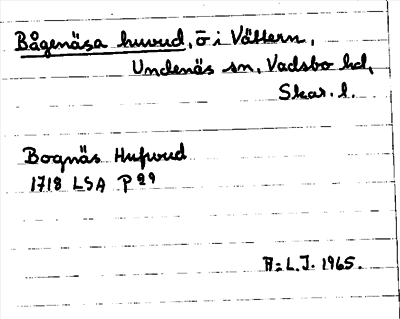 Bågenäsa huvud, ö i Vättern,
Undenäs sn, Vadsbo hd,
Skar. l.
Bognäs Hufwud
1718 LSA P 29
A: L.J. 1965.